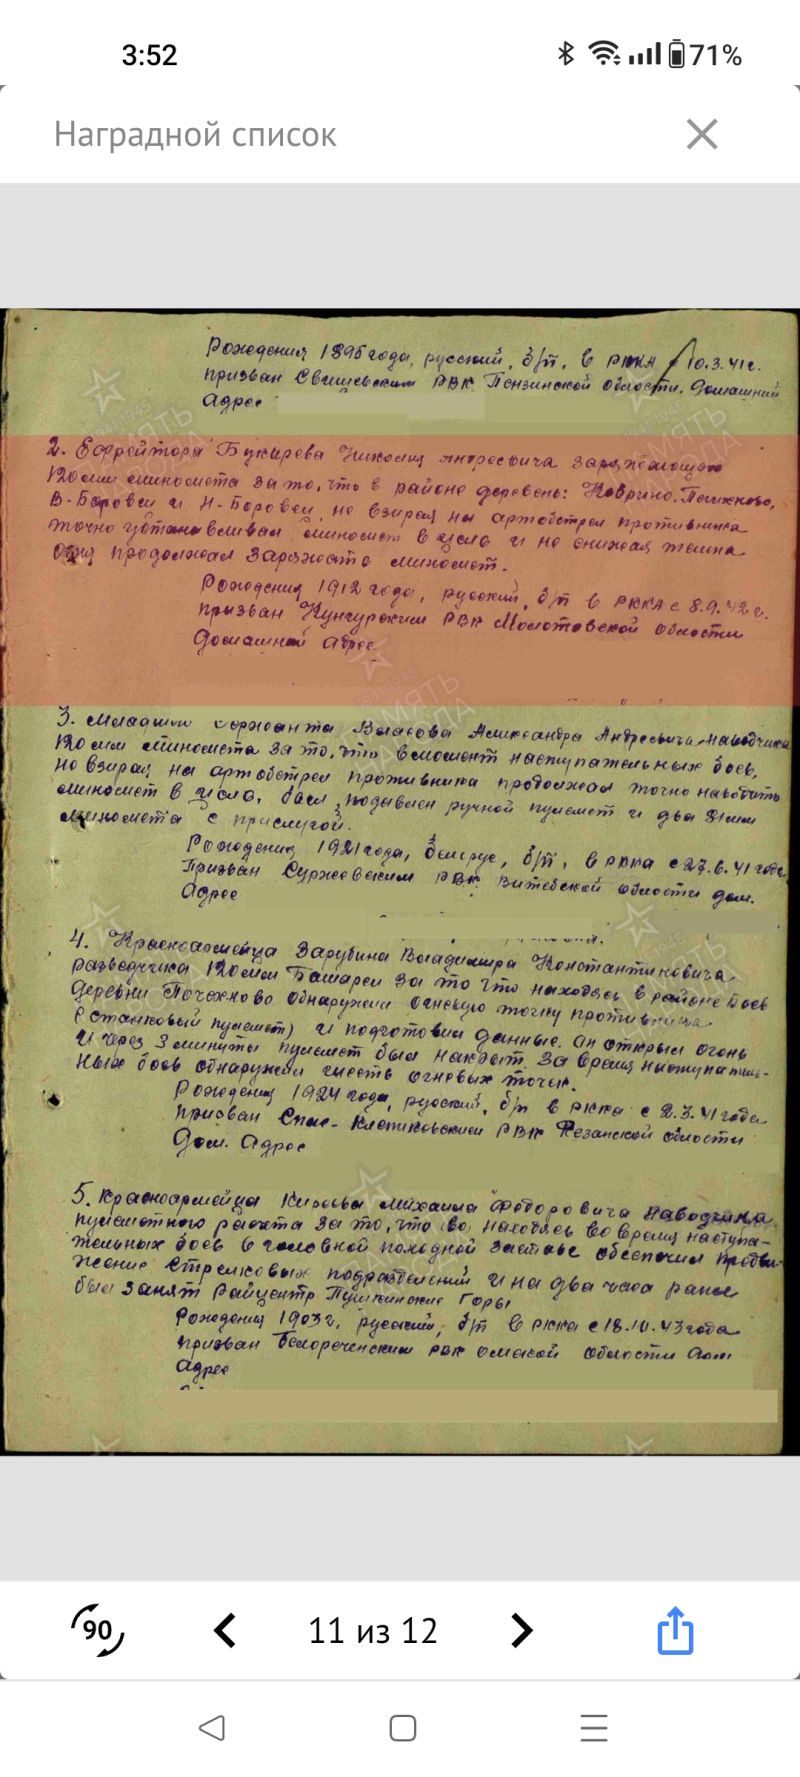 3:52
71%
Наградной список
Рождения 1895 года, русский, б/п, в РККА с 10.3.41г.
призван Свищевским РВК Пензинской области. Домашний
Адрес
2. Ефрейтора Букарева Николая Андреевича заряжающего
120мм миномета за то, что в районе деревень:
В-Боровеи и Н-Боровеи, не взирая на артобстрел противника
точно устанавливал миномет в цели и не снижая темпа
огня продолжал заряжать миномет.
Рождения 1912 года, русский, б/п в РККА с 8.9.42г.
призван Кунгурским РВК Молотовской области
Домашний Адрес
3. Младшего сержанта Власова Александра Андреевича наводчика
120мм миномета за то, что в момент наступательных боев,
не взирая на артобстрел противника продолжал точно наводить
миномет в цели, был подавлен ручной пулемет и два 81мм
миномета с прислугой.
Рождения 1921 года, белорус, б/п, в РККА с 27.6.41 года
Призван РВК Витебской области дом.
Адрес
4. Красноармейца Зарубина Владимира Константиновича
разведчика 120мм Батареи за то что находясь в районе боев
деревни обнаружил огневую точку противника
(станковый пулемет) и подготовил данные. он открыл огонь
и через 3 минуты пулемет был накрыт. За время наступатель-
ных боев обнаружил шесть огневых точек.
Рождения 1924 года, русский, б/п в РККА с 2.3.41 года
призван Спас-Клепиковским РВК Резанской области
Дом. Адрес
5. Красноармейца Михаила Федоровича наводчика
пулеметного расчета за то, что находясь во время наступа-
тельных боев в головной походной заставе обеспечил продви-
жение стрелковых подразделений и на два часа ранее
был занят Райцентр Пушкинские Горы
Рождения 1903г. русский, б/п в РККА с 18.10.43 года
призван Белореченским РВК омской области Дом
Адрес
90
11 из 12